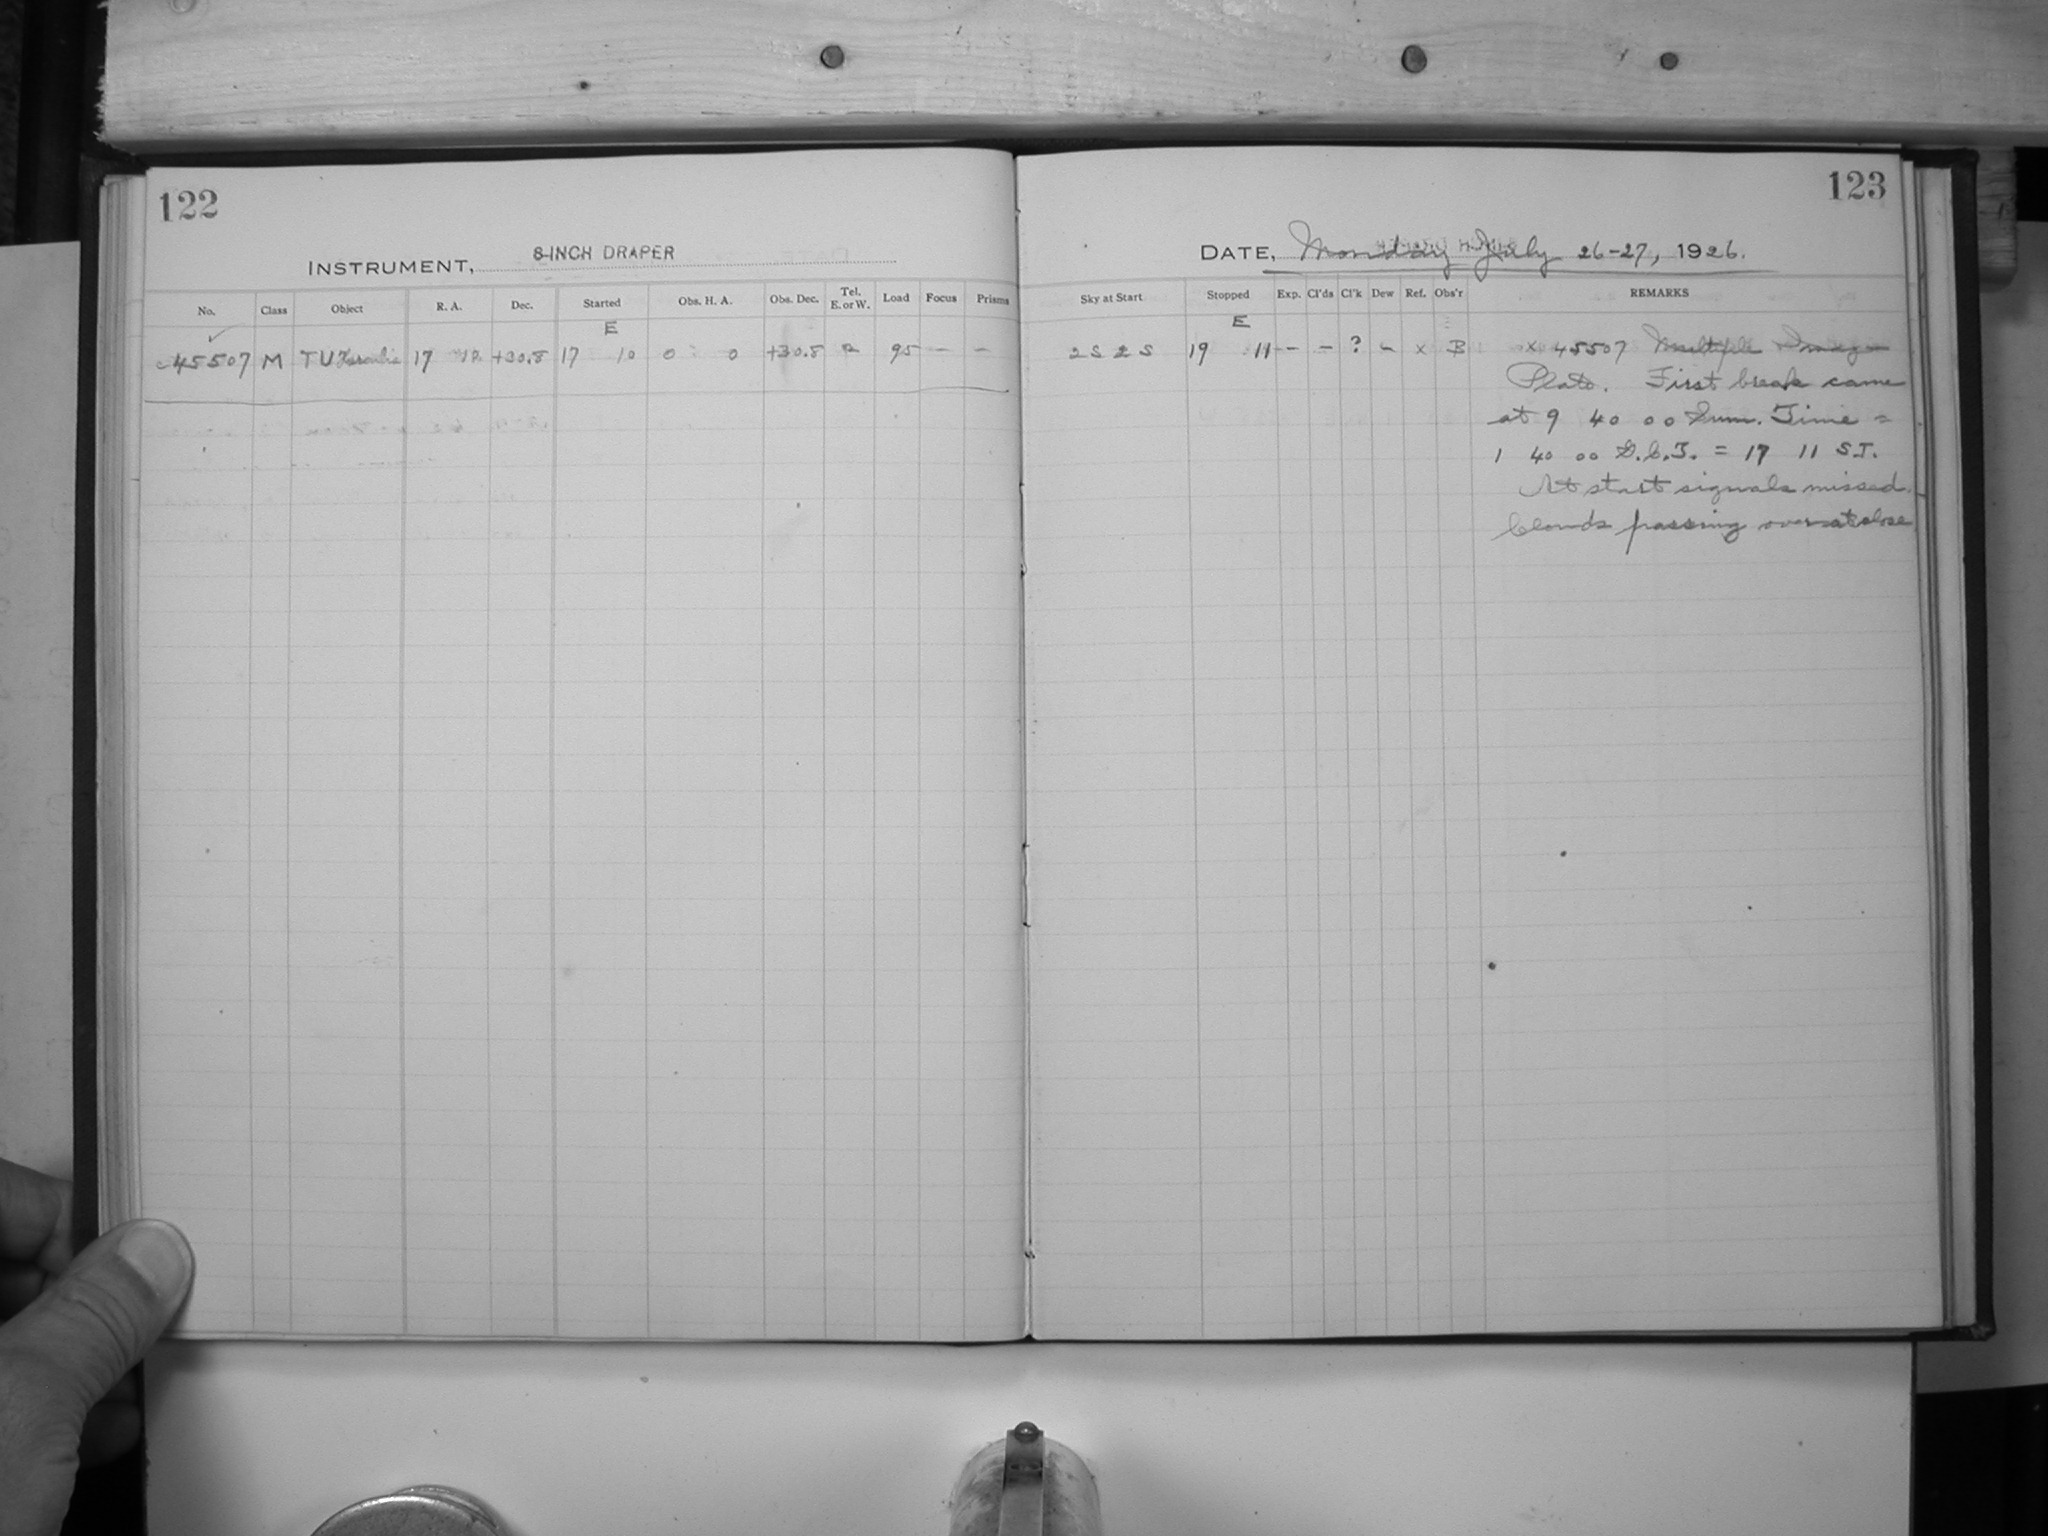 122
INSTRUMENT, 8-INCH DRAPER
No. Class Object R. A. Dec. Started Obs. H. A. Obs. Dec. Tel. E. or W. Load Focus Prisms
E
45507 M TU Herculis 17 12 +30.8 17 10 0 0 +30.8 95 — —
123
DATE, Monday July 26-27, 1926.
Sky at Start Stopped Exp. Cl'ds Cl'k Dew Ref. Obs'r REMARKS
E
2S 2S 19 11 — — ? - x B x 45507 Multiple Image
Plate. First break came
at 9 40 00 Sum. Time =
1 40 00 G.C.T. = 17 11 S.T.
At start signals missed.
Clouds passing over at close